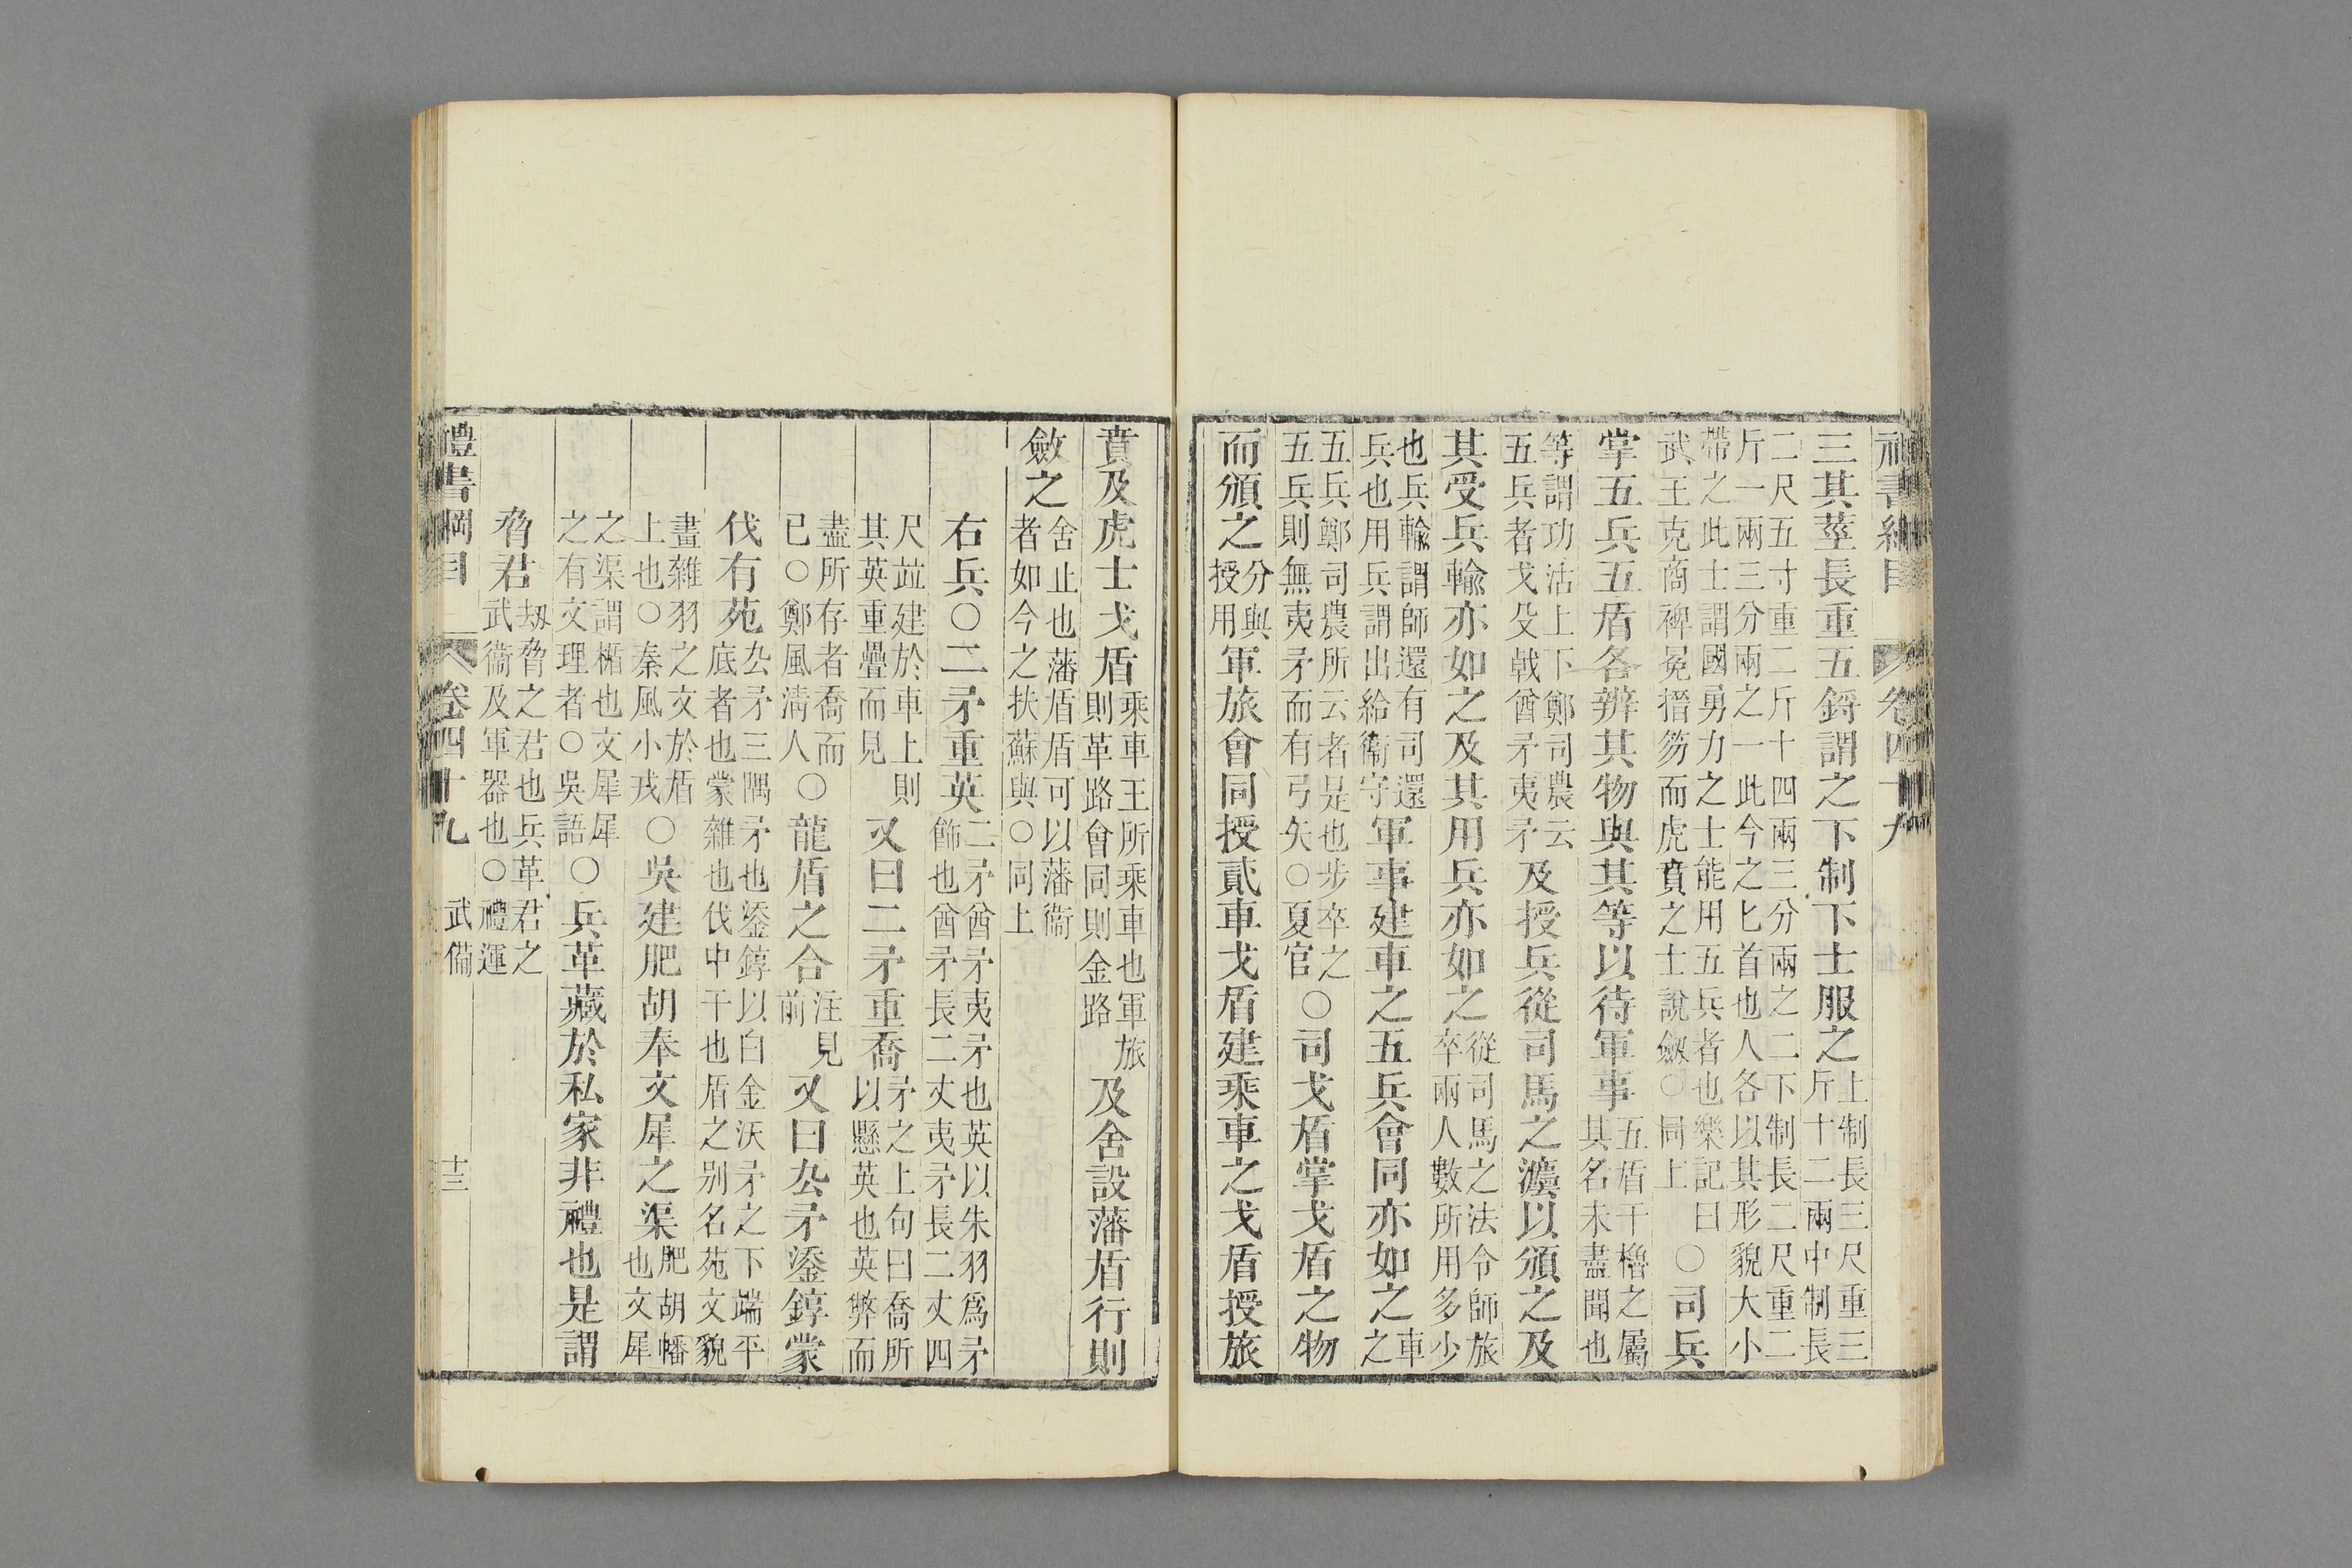 禮書綱目 卷四十九
三其莖長重五鋝謂之下制下士服之上制長三尺重三斤十二兩中制長
二尺五寸重二斤十四兩三分兩之二下制長二尺重二斤一兩三分兩之一此今之匕首也人各以其形貌大小
帶之此士謂國勇力之士能用五兵者也樂記曰武王克商裨冕搢笏而虎賁之士說劔○同上○司兵
掌五兵五盾各辨其物與其等以待軍事五盾干櫓之屬其名未盡聞也
等謂功沽上下鄭司農云五兵者戈殳戟酋矛夷矛及授兵從司馬之灋以頒之及
其受兵輸亦如之及其用兵亦如之從司馬之法令師旅卒兩人數所用多少
也兵輸謂師還有司還兵也用兵謂出給衞守軍事建車之五兵會同亦如之車之
五兵鄭司農所云者是也步卒之五兵則無夷矛而有弓矢○夏官○司戈盾掌戈盾之物
而頒之分與授用軍旅會同授貳車戈盾建乘車之戈盾授旅
賁及虎士戈盾乘車王所乘車也軍旅則革路會同則金路及舍設藩盾行則
斂之舍止也藩盾盾可以藩衞者如今之扶蘇與○同上
右兵○二矛重英二矛酋矛夷矛也英以朱羽爲矛飾也酋矛長二丈夷矛長二丈四
尺竝建於車上則其英重疊而見又曰二矛重喬矛之上句曰喬所以懸英也英弊而
盡所存者喬而已○鄭風淸人○龍盾之合注見前又曰厹矛鋈錞蒙
伐有苑厹矛三隅矛也鋈錞以白金沃矛之下端平底者也蒙雜也伐中干也盾之别名苑文貌
畫雜羽之文於盾上也○秦風小戎○吳建肥胡奉文犀之渠肥胡幡也文犀
之渠謂楯也文犀犀之有文理者○吳語○兵革藏於私家非禮也是謂
脅君劫脅之君也兵革君之武衞及軍器也○禮運
禮書綱目 卷四十九 武備 十三